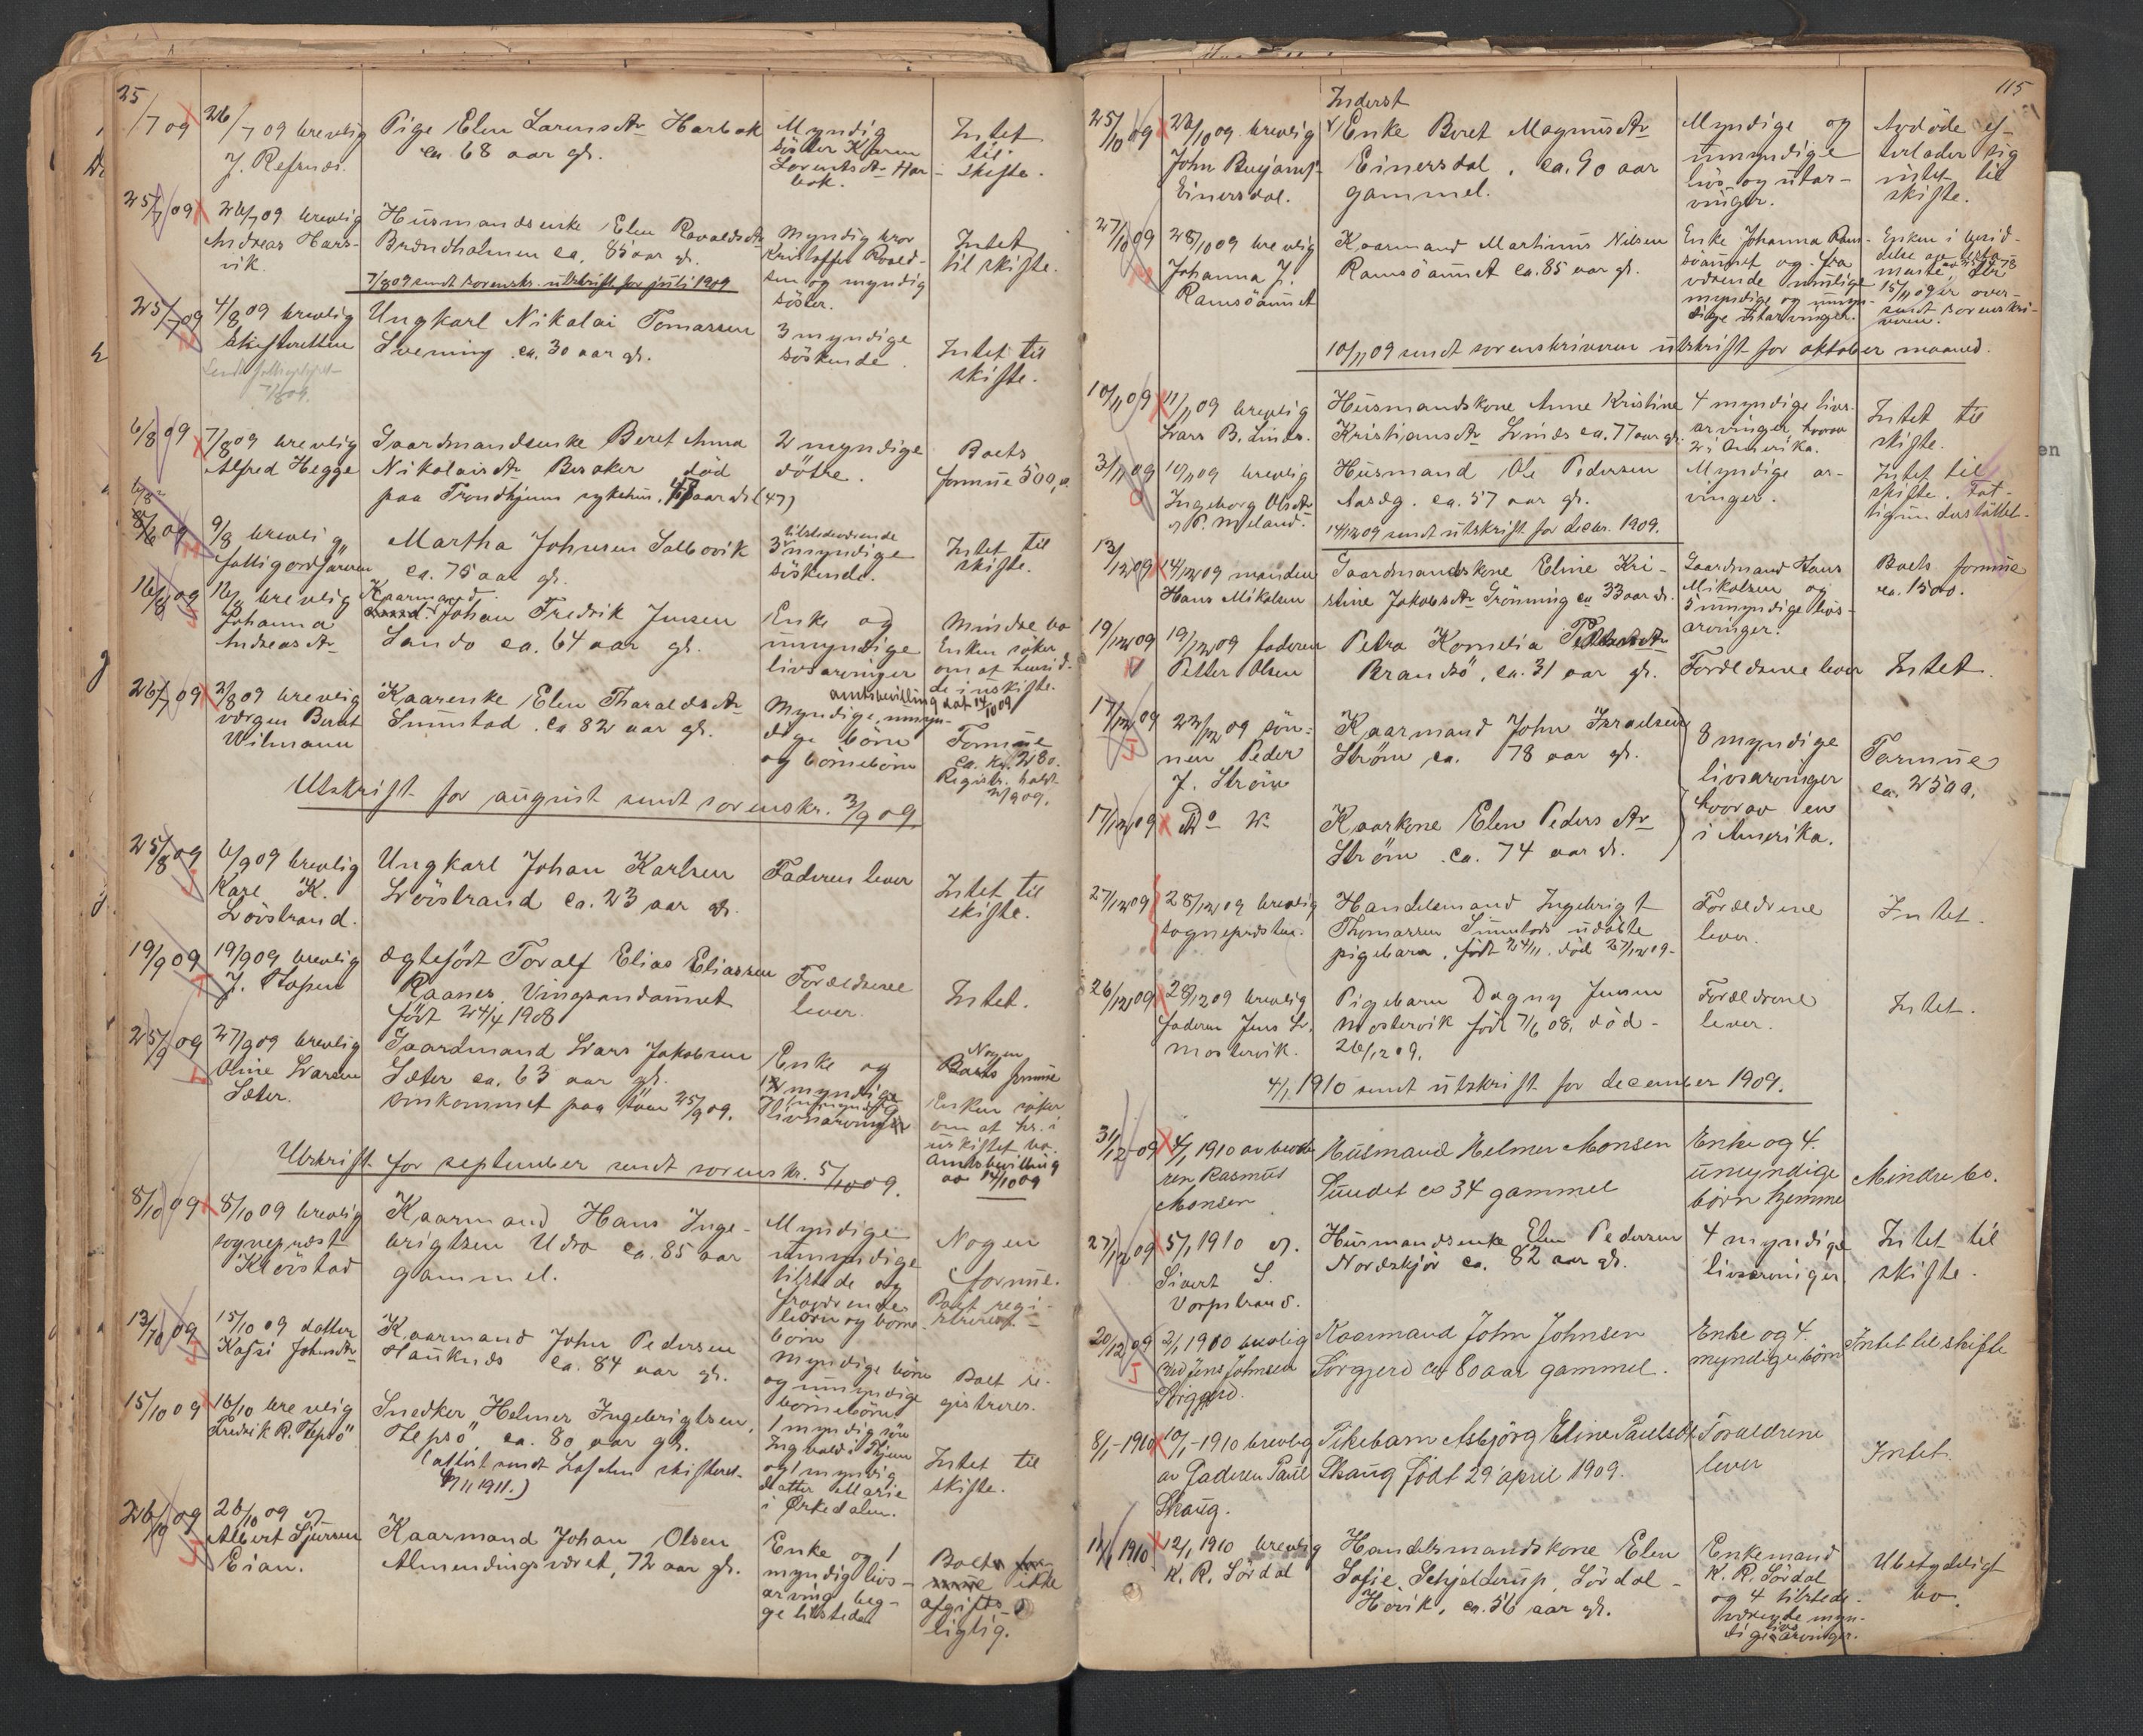 25/7 09
26/7 09 brevlig
J. Refsnes.
Pige Elen Larensdtr Harbak
ca. 68 aar gl.
Myndig
söster Karen
Lorentsdtr Har-
bak.
Intet
til
skifte.
25/7 09
26/7 09 brevlig
Andreas Hars-
vik.
Husmandsenke Elen Roaldsdtr
Brandholmen ca. 85 aar gl.
Myndig bror
Kristoffer Roald-
sen og myndig
söster.
Intet
til skifte.
7/8 09 sendt sorenskr. utskrift for juli 1909
25/7 09
4/8 09 brevlig
Skifteretten
7/8 09.
Ungkarl Nikolai Tomassen
Svenning ca. 30 aar gl.
3 myndige
söskende.
Intet til
skifte.
6/8 09
7/8 09 brevlig
Alfred Hegge
Gaardmandsenke Beret Anna
Nikolaisdtr Besaker död
paa Trondhjems sykehus, aar gl. (47)
2 myndige
döttre.
Boets
formue 500,-
8/8 09
9/8 brevlig
fattigordföreren
Martha Johnsen Salbovik
ca. 75 aar gl.
tilstedeværende
3 myndige
söskende.
Intet til
skifte.
16/8 09
brevlig
Johanna
Andreasdtr
Kaarmand
Johan Fredrik Jensen
Sando ca. 64 aar gl.
Enke og
umyndige
livsarvinger
Mindre bo
Enken söker
om at hensid-
de i uskifte.
amtsbevilling dat 14/10 09
26/7 09
2/8 09 brevlig
værgen Bernt
Wilmann
Kaarenke Elen Tharaldsdtr
Sumstad. ca 82 aar gl.
Myndige, umyn-
dige börn
og börnebörn
Formue
ca. kr. 280.
Registr. holdt
2/9 09.
Utskrift for august sendt sorenskr. 3/9 09.
25/8 09
6/9 09 brevlig
Karl K.
Lövstrand.
Ungkarl Johan Karlsen
Lövstrand ca. 23 aar gl.
Faderen lever
Intet til
skifte.
19/9 09
19/9 09 brevlig
J. Hopen
Ægtefödt Toralf Elias Eliassen
Raanes, Vingsandaunet
född 24/4 1908
Forældrene
lever.
Intet.
25/9 09
27/9 09 brevlig
Oline Larsen
Sæter.
Gaardmand Lars Jakobsen
Sæter ca. 63 aar gl.
omkommet paa sjöen 25/9 09.
Enke og
myndige
livsarvinger
Nogen
Boets formue
Enken söker
om at hs. i
uskiftet bo.
Amtsbevilling
av 14/10 09
Utskrift for september sendt sorenskr. 5/10 09.
8/10 09
8/10 09 brevlig
sogneprest
Klövstad
Kaarmand Hans Inge-
brigtsen Udrø ca. 85 aar
gammel.
Myndige
umyndige
tilstede og
fraværende
börn og börne-
börn
Nogen
formue.
Boet regi-
streret
13/10 09
15/10 09 datter
Kafsi Johnsdtr
Kaarmand John Pedersen
Hauknes ca. 84 aar gl.
Myndige börn
og umyndige
börnebörn
Boet re-
gistreres.
15/10 09
16/10 brevlig
Fredrik R. Hepsö
Snedker Helmer Ingebrigtsen,
Hepsö ca. 80 aar gl.
1 myndig sön
Ingvald i Thjem
og 1 myndig
datter Marie
i Orkedalen.
Intet til
skifte.
26/10 09
26/10 09 v/
Albert Sjursen
Eian.
Kaarmand Johan Olsen
Almendingsværet, 72 aar gl.
Enke og 1
myndig livs-
arving beg-
ge tilstede
Boets
ikke
afgifts-
pligtig.
115
25/10 09
26/10 09 brevlig
John Benjams.
Einersdal.
Inderst
Enke Beret Magnusdtr
Einersdal, ca. 90 aar
gammel.
Myndige og
umyndige
livs og utar-
vinger.
Avdöde ef-
terlader sig
intet til
skifte.
27/10 09
28/10 09 brevlig
Johanna J.
Ramsöaunet
Kaarmand Martinus Nilsen
Ramsöaunet ca. 85 aar gl.
Enke Johanna Ram-
söaunet og fra
værende umulige
myndige og umyn-
dige utarvinger.
Enken i besid-
delse av testa-
mente
15/11 09 er over-
sendt sorenskri-
veren.
10/11 09 sendt sorenskriveren utskrift for oktober maaned.
10/11 09
11/11 09 brevlig
Lars B. Linds.
Husmandskone Anne Kristine
Kristiansdtr Linds ca. 77 aar gl.
4 myndige livs-
arvinger hvorav
2 i Amerika.
Intet til
skifte.
3/11 09
10/11 09 brevlig
Ingeborg Olsdtr
v/ P. Meland.
Husmand Ole Pedersen
Aasdg. ca. 57 aar gl.
Myndige ar-
vinger.
Intet til
skifte. Fat-
tigunderstöttet.
14/12 09 sendt utskrift for decbr. 1909.
13/12 09
14/12 09 manden
Hans Mikalsen
Gaardmandskone Eline Kri-
stine Jakobsdtr Grönning ca 33 aar gl.
Gaardmand Hans
Mikalsen og
5 umyndige livs-
arvinger.
Boets formue
ca. 1500.
19/12 09
19/12 09 faderen
Petter Olsen
Petra Kornelia Pettersdtr
Brandsö, ca. 31 aar gl.
Forældrene lever
Intet.
17/12 09
22/12 09 sön-
nen Peder
J. Ström
Kaarmand John Israelsen
Ström ca. 78 aar gl.
8 myndige
livsarvinger
hvorav en
i Amerika.
Formue
ca. 2500.
17/12 09
Do
Kaarkone Elen Pedersdtr
Ström ca. 74 aar gl.
27/12 09
28/12 09 brevlig
sognepresten.
Handelsmand Ingebrigt
Thomassen Sumstads udöbte
pigebarn, födt 24/11. död 27/12 09.
Forældrene
lever.
Intet.
26/12 09
28/12 09 brevlig
faderen Jens L.
Mostervik.
Pigebarn Dagny Jensen
Mostervik född 7/6 08. död
26/12 09.
Forældrene
lever.
Intet.
4/1 1910 sendt utskrift for december 1909.
31/12-09
4/1 1910 av brode-
ren Rasmus
Monsen
Husmand Helmer Monsen
Sundet ca 34 gammel
Enke og 4
umyndige
börn hjemme
Mindre bo.
27/12 09
5/1 1910 v/
Sivert S.
Vorpstrand.
Husmandsenke Elen Pedersen
Nordskjör ca. 82 aar gl.
4 myndige
livsarvinger.
Intet til
skifte.
20/12 09
2/1 1910 brevlig
ved Jens Johnsen
Sörgjerd.
Kaarmand John Johnsen
Sörgjerd ca 80 aar gammel.
Enke og 4
myndige börn
Intet til skifte
8/1-1910
10/1-1910 brevlig
av Faderen Paul
Skaug.
Pikebarn Asbjörg Eline Paulsdt
Skaug födt 29 april 1909.
Foraeldrene
lever
Intet.
12/1 1910
12/1 1910 brevlig
K. R. Sördal
Handelsmandskone Elen
Sofie Schjelderup Sördal-
Hovik, ca. 56 aar gl.
Enkemand
K. R. Sördal
og 4 tilstede-
værende myn-
dige livsarvinger.
Ubetydeligt
bo.